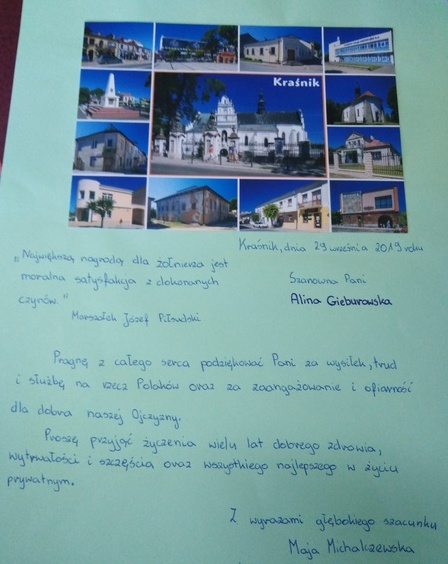 Kraśnik
Kraśnik, dnia 29 września 2019 roku
„Największą nagrodą dla żołnierza jest
moralna satysfakcja z dokonanych
czynów."
Marszałek Józef Piłsudski
Szanowna Pani
Alina Gieburowska
Pragnę z całego serca podziękować Pani za wysiłek, trud
i służbę na rzecz Polaków oraz za zaangażowanie i ofiarność
dla dobra naszej Ojczyzny.
Proszę przyjąć życzenia wielu lat dobrego zdrowia,
wytrwałości i szczęścia oraz wszystkiego najlepszego w życiu
prywatnym.
Z wyrazami głębokiego szacunku
Maja Michalczewska